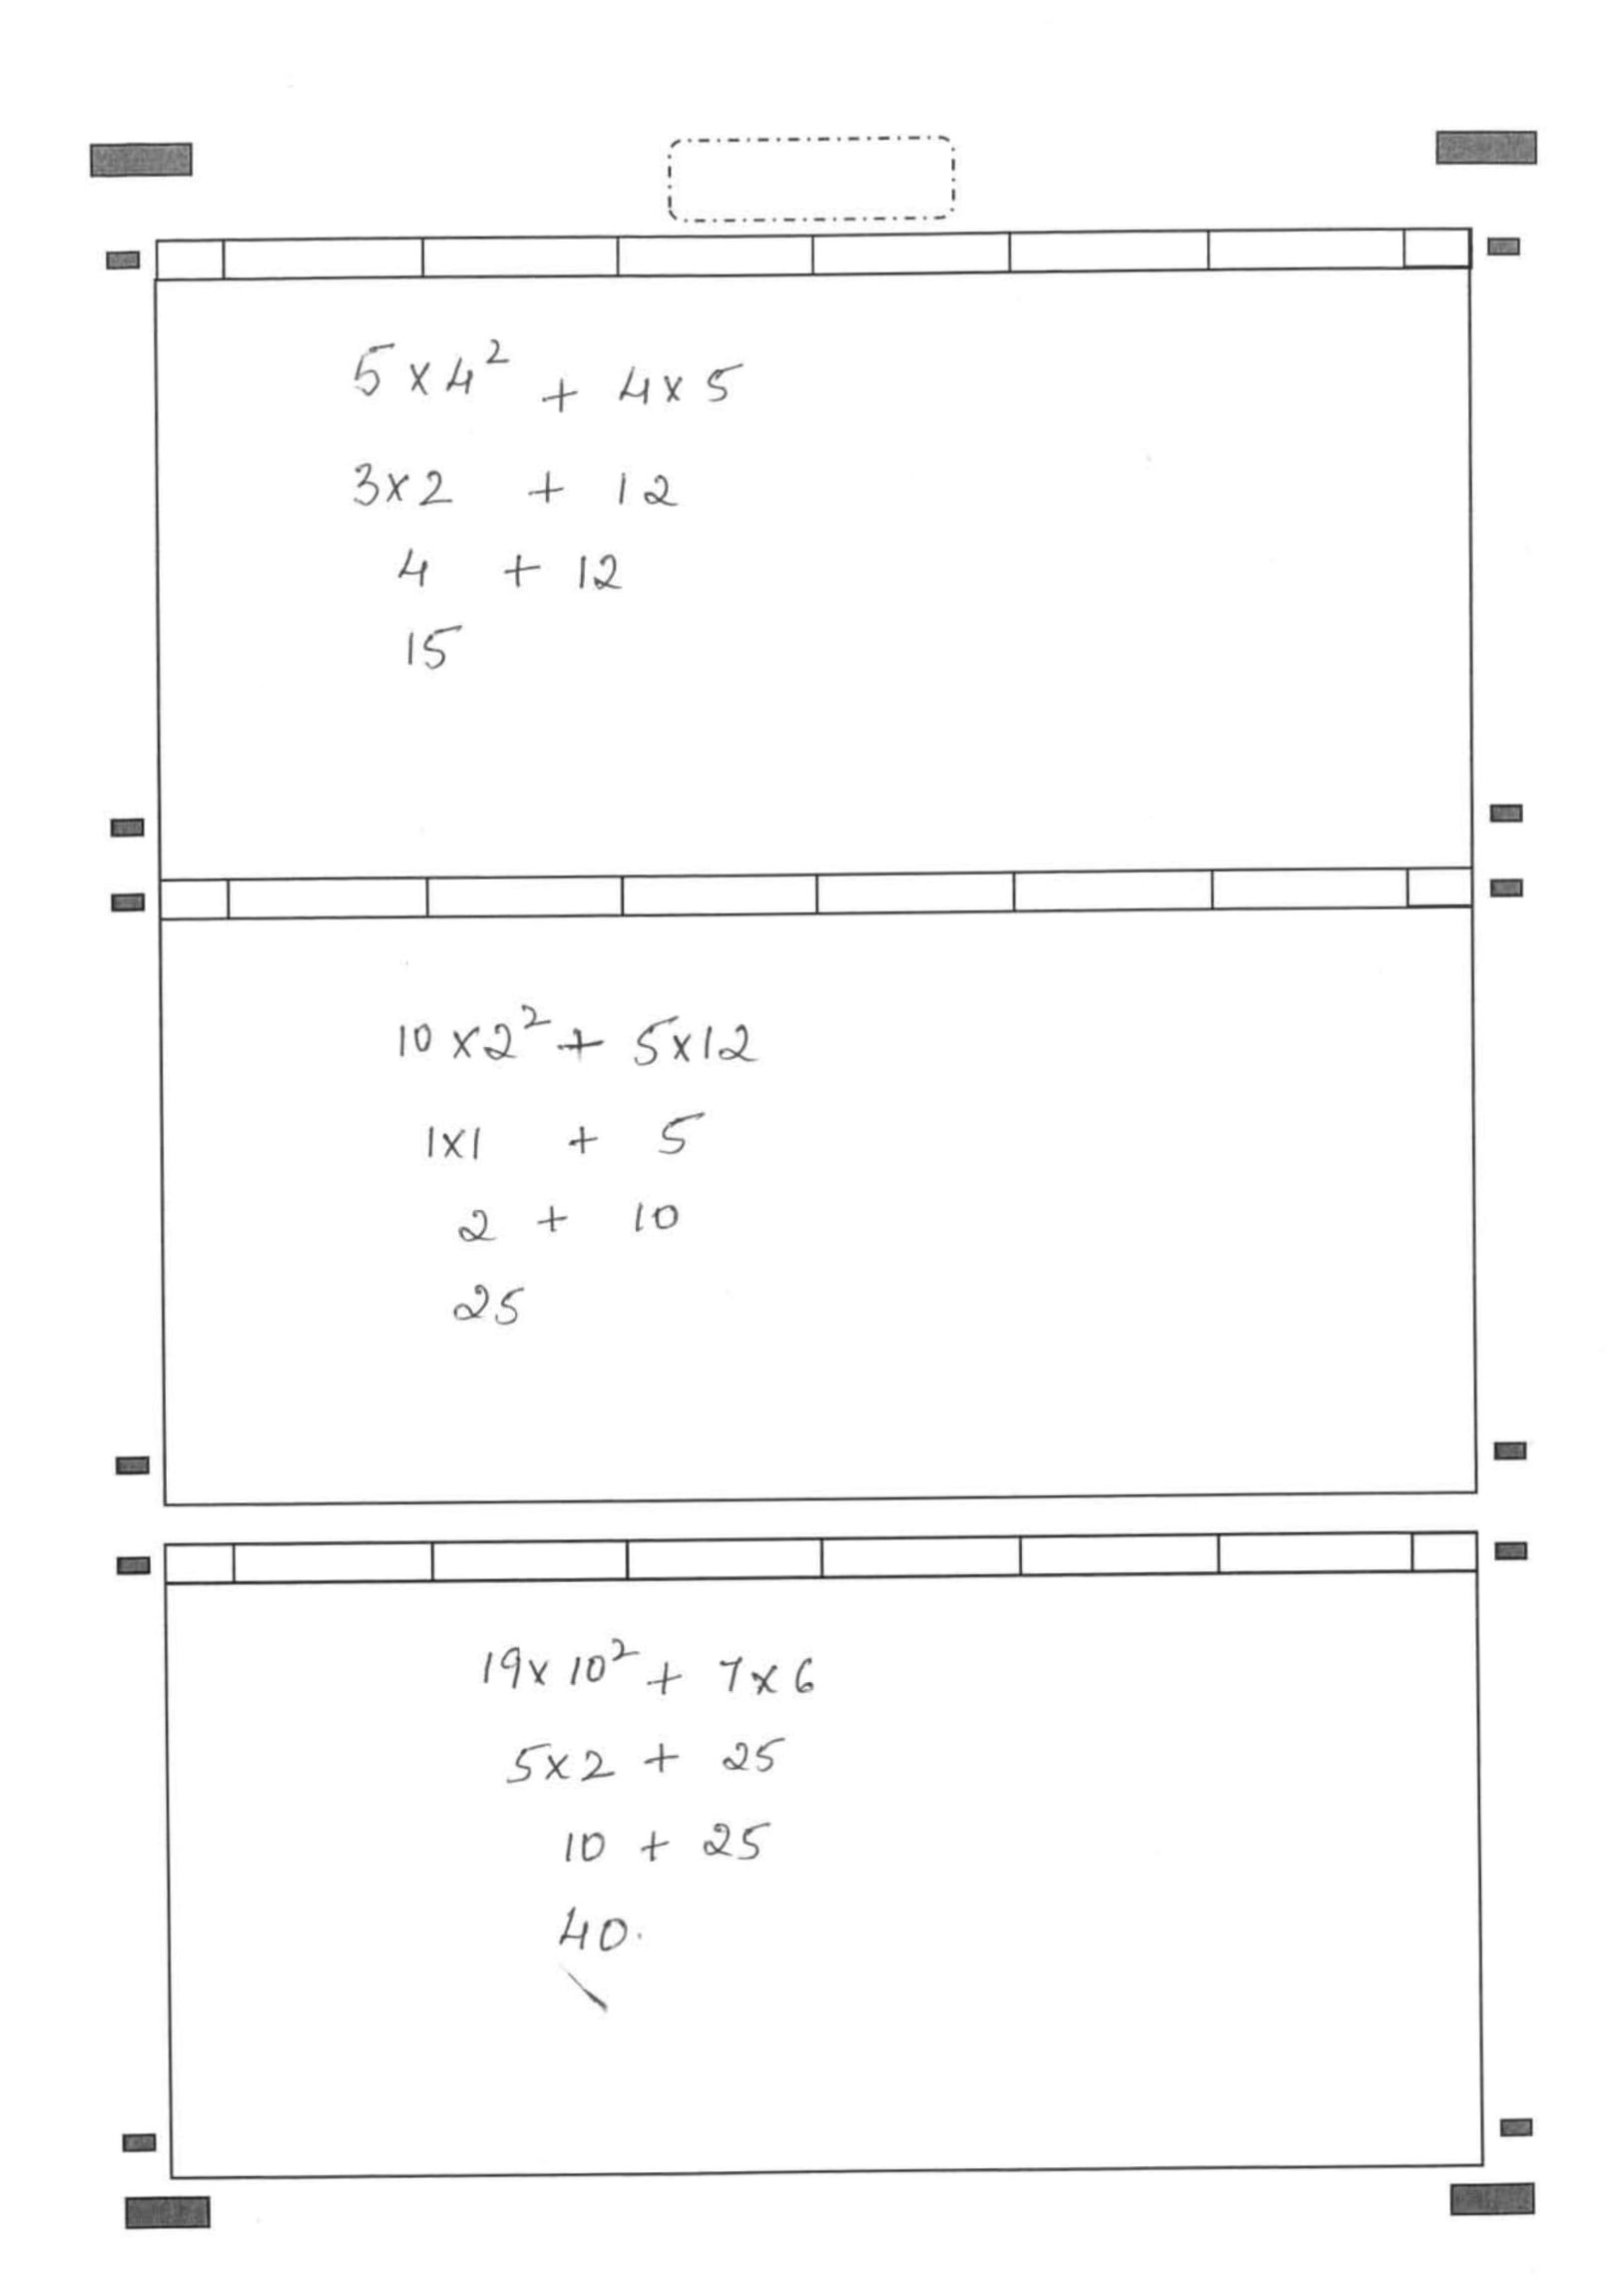 5 × 4² + 4 × 5
3 × 2 + 12
4 + 12
15
10 × 2² + 5 × 12
1 × 1 + 5
2 + 10
25
19 × 10² + 7 × 6
5 × 2 + 25
10 + 25
40.